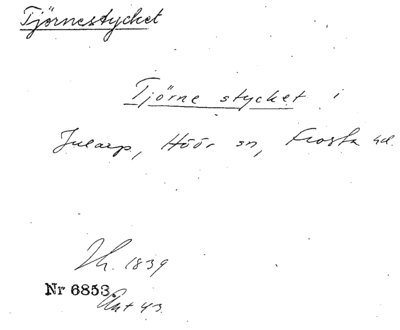 Tjörnestycket
Tjörne stycket i
Jularp, Höör sn, Frosta hd.
Th. 1839
Nr 6853.
Akt 43.